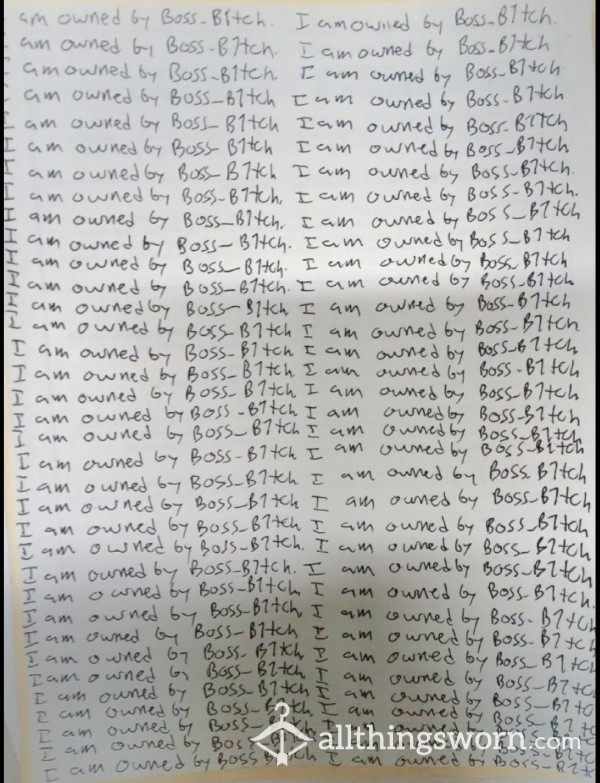 am owned by Boss-B1tch. I am owned by Boss-B1tch.
am owned by Boss-B1tch. I am owned by Boss-B1tch
am owned by Boss-B1tch. I am owned by Boss-B1tch
am owned by Boss-B1tch I am owned by Boss-B1tch
I am owned by Boss-B1tch I am owned by Boss-B1tch
I am owned by Boss-B1tch I am owned by Boss-B1tch.
I am owned by Boss-B1tch I am owned by Boss-B1tch.
I am owned by Boss-B1tch. I am owned by Boss-B1tch.
I am owned by Boss-B1tch. I am owned by Boss-B1tch
I am owned by Boss-B1tch. I am owned by Boss-B1tch
I am owned by Boss-B1tch. I am owned by Boss-B1tch
I am owned by Boss-B1tch. I am owned by Boss-B1tch
I am owned by Boss-B1tch I am owned by Boss-B1tch
I am owned by Boss-B1tch I am owned by Boss-B1tch
I am owned by Boss-B1tch I am owned by Boss-B1tch
I am owned by Boss-B1tch I am owned by Boss-B1tch
I am owned by Boss-B1tch I am owned by Boss-B1tch
I am owned by Boss-B1tch I am owned by Boss-B1tch
I am owned by Boss-B1tch I am owned by Boss-B1tch
I am owned by Boss-B1tch I am owned by Boss-B1tch
I am owned by Boss-B1tch I am owned by Boss-B1tch
I am owned by Boss-B1tch I am owned by Boss-B1tch
I am owned by Boss-B1tch I am owned by Boss-B1tch
I am owned by Boss-B1tch. I am owned by Boss-B1tch
I am owned by Boss-B1tch. I am owned by Boss-B1tch
I am owned by Boss-B1tch I am owned by Boss-B1tch.
I am owned by Boss-B1tch I am owned by Boss-B1tch
I am owned by Boss-B1tch I am owned by Boss-B1tch
I am owned by Boss-B1tch I am owned by Boss-B1tch
I am owned by Boss-B1tch I am owned by Boss-B1tch
I am owned by Boss-B1tch I am owned by Boss-B1tc
I am owned by Boss-B1tch I am owned by Boss-B1tc
I am owned by Boss-B1tch I am owned by Boss-B1tc
I am owned by Boss
I am owned by Boss B1tch I am owned by Boss-B1t
allthingsworn.com